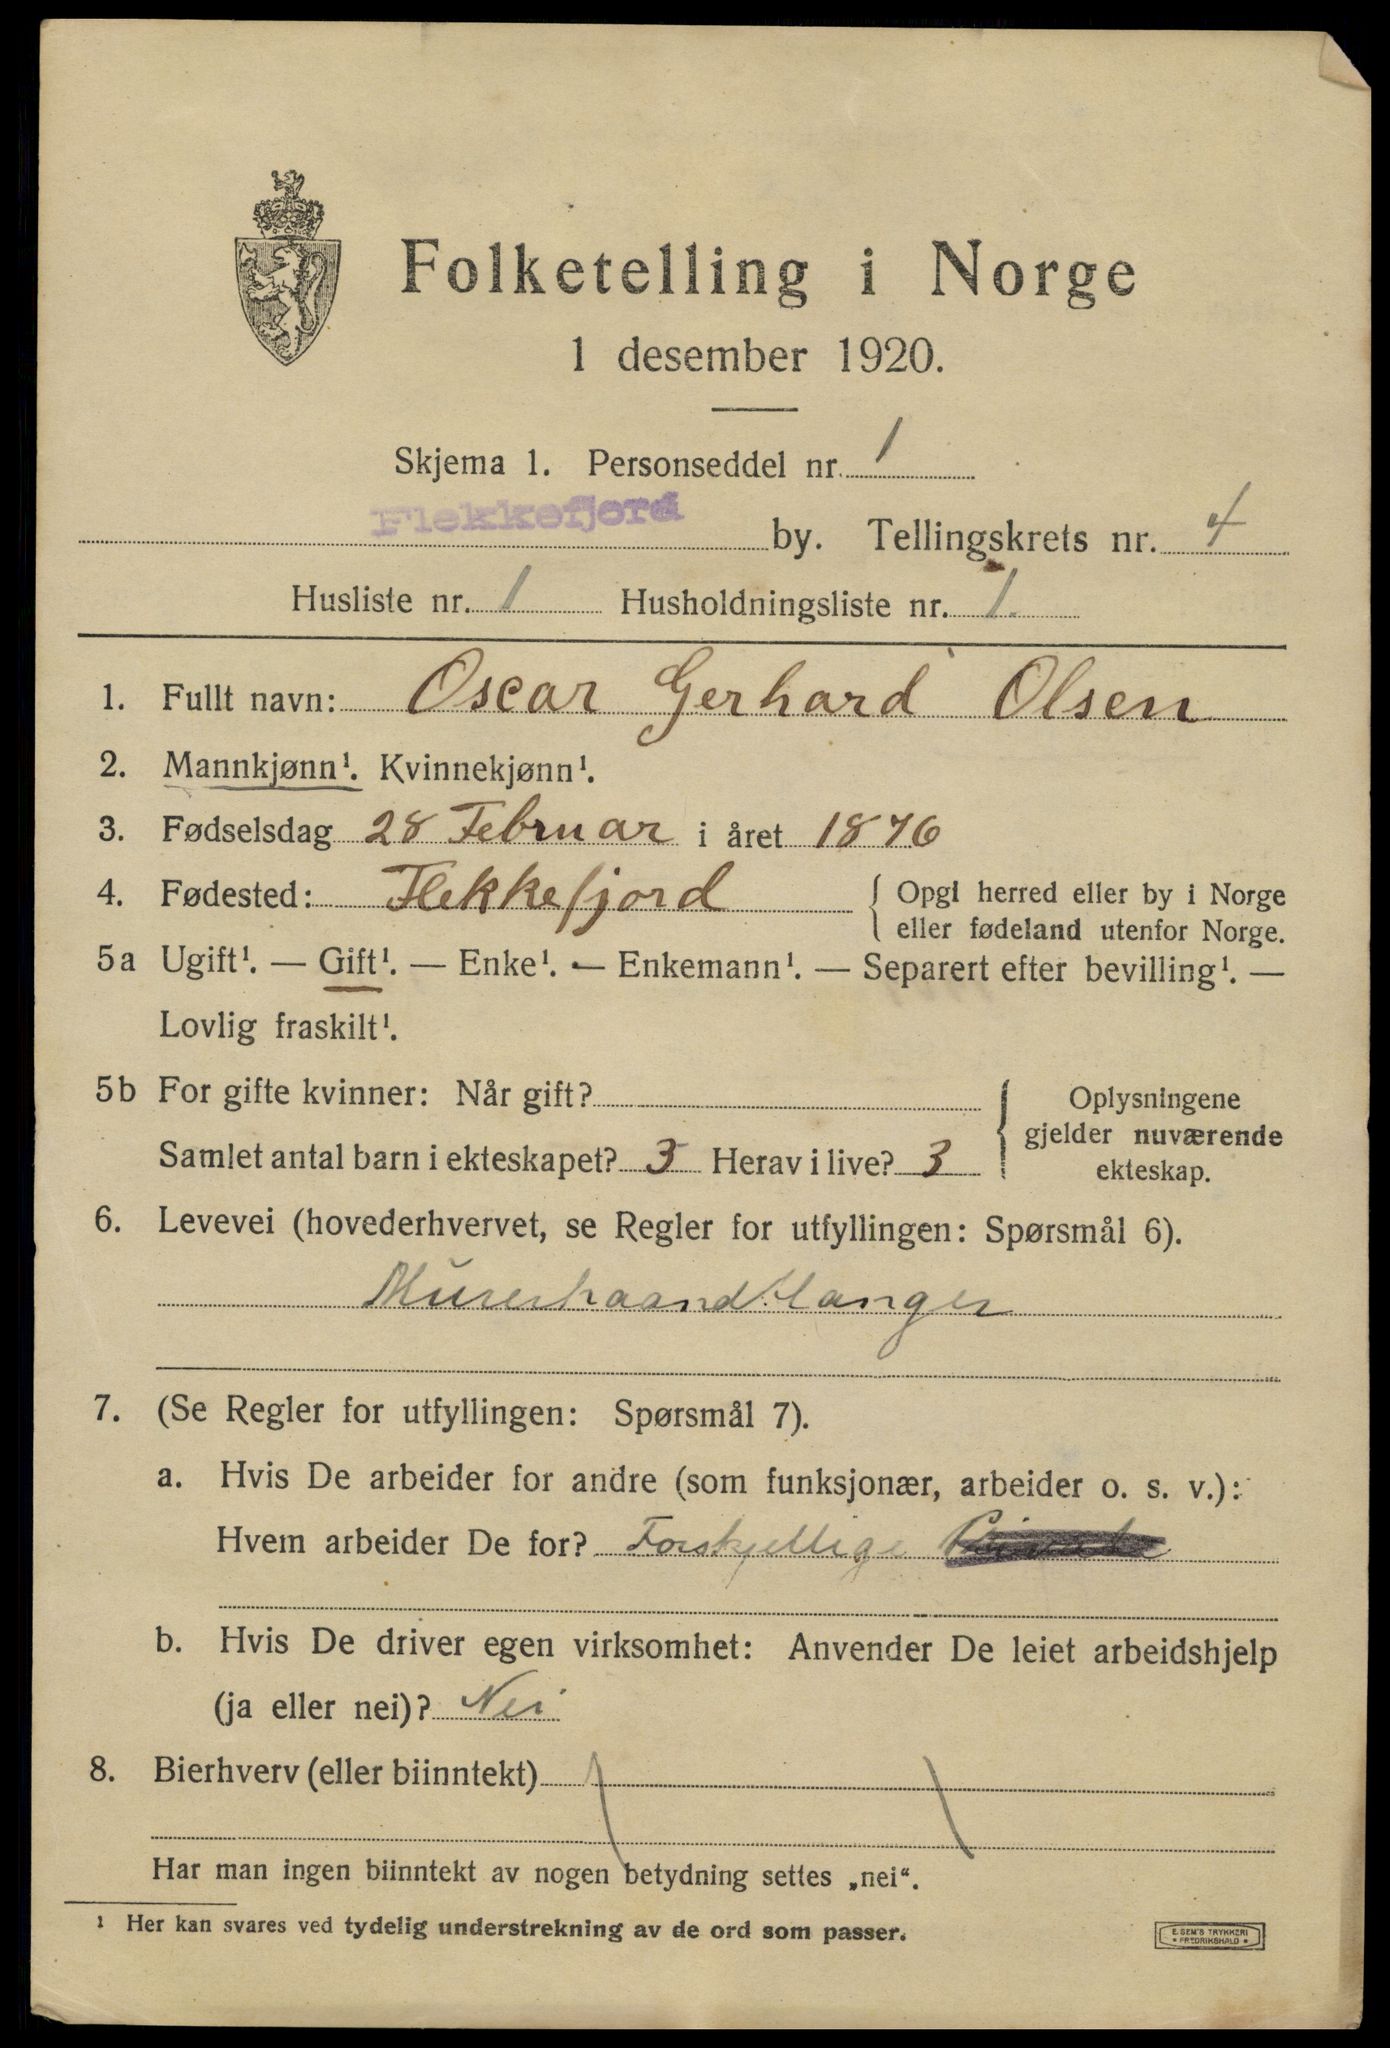 Folketelling i Norge
1 desember 1920.
Skjema 1. Personseddel nr. 1
Flekkefjord by. Tellingskrets nr. 4
Husliste nr. 1 Husholdningsliste nr. 1.
1. Fullt navn: Oscar Gerhard Olsen
2. Mannkjønn¹. Kvinnekjønn¹.
3. Fødselsdag 28 Februar i året 1876
4. Fødested: Flekkefjord { Opgi herred eller by i Norge
eller fødeland utenfor Norge.
5a Ugift¹. — Gift¹. — Enke¹. — Enkemann¹. — Separert efter bevilling¹. —
Lovlig fraskilt¹.
5b For gifte kvinner: Når gift? { Oplysningene
gjelder nuværende
Samlet antal barn i ekteskapet? 3 Herav i live? 3 ekteskap.
6. Levevei (hovederhvervet, se Regler for utfyllingen: Spørsmål 6).
Murerhaandtlanger
7. (Se Regler for utfyllingen: Spørsmål 7).
a. Hvis De arbeider for andre (som funksjonær, arbeider o. s. v.):
Hvem arbeider De for? Forskjellige Private
b. Hvis De driver egen virksomhet: Anvender De leiet arbeidshjelp
(ja eller nei)? Nei
8. Bierhverv (eller biinntekt)
Har man ingen biinntekt av nogen betydning settes „nei“.
¹ Her kan svares ved tydelig understrekning av de ord som passer.
E. SEM'S TRYKKERI
* FREDRIKSHALD *